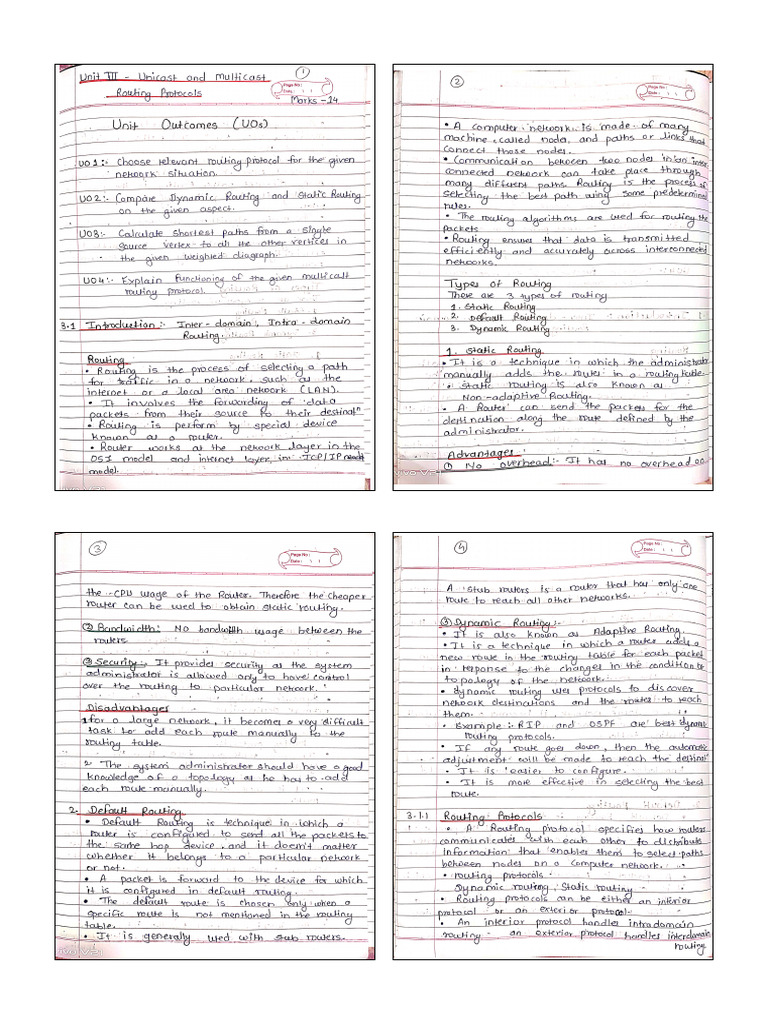 1
Unit III - Unicast and Multicast
Routing Protocols
Page No :
Date :
Marks - 14
Unit Outcomes (UOs)
UO1:- Choose relevant routing protocol for the given
network situation.
UO2:- Compare Dynamic Routing and Static Routing
on the given aspect.
UO3:- Calculate shortest paths from a single
source vertex to all the other vertices in
the given weighted diagraph.
UO4:- Explain functioning of the given multicast
routing protocol.
3.1 Introduction:- Inter-domain, Intra-domain
Routing.
Routing
• Routing is the process of selecting a path
for traffic in a network, such as the
internet or a local area network (LAN).
• It involves the forwarding of data
packets from their source to their destinatn
• Routing is perform by special device
known as a router.
• Router works at the network layer in the
OSI model and internet layer in TCP/IP
model.
2
Page No :
Date :
• A computer network is made of many
machine, called node, and paths or links that
connect those nodes.
• Communication between two nodes in an inter
connected network can take place through
many different paths. Routing is the process of
selecting the best path using some predetermined
rules.
• The routing algorithms are used for routing the
packets
• Routing ensures that data is transmitted
efficiently and accurately across interconnected
networks.
Types of Routing
There are 3 types of routing
1. Static Routing
2. Default Routing
3. Dynamic Routing
1. Static Routing
• It is a technique in which the administrator
manually adds the routes in a routing table.
• Static routing is also known as
Non-adaptive Routing.
• A Router can send the packets for the
destination along the route defined by the
administrator.
Advantages
① No overhead:- It has no overhead on
3
Page No :
Date :
the CPU usage of the Router. Therefore the cheaper
router can be used to obtain static routing.
② Bandwidth:- No bandwidth usage between the
routers
③ Security:- It provides security as the system
administrator is allowed only to have control
over the routing to particular network.
Disadvantages
1 for a large network, it becomes a very difficult
task to add each route manually to the
routing table.
2 The system administrator should have a good
knowledge of a topology as he has to add
each route manually.
2. Default Routing
• Default Routing is technique in which a
router is configured to send all the packets to
the same hop device, and it doesn't matter
whether it belongs to a particular network
or not.
• A packet is forward to the device for which
it is configured in default routing.
• The default route is chosen only when a
specific route is not mentioned in the routing
table.
• It is generally used with sub routers.
4
Page No :
Date :
A stub routers is a router that has only one
route to reach all other networks.
③ Dynamic Routing:-
• It is also known as Adaptive Routing.
• It is a technique in which a router adds a
new route in the routing table for each packet
in reponse to the changes in the condition or
topology of the network.
• dynamic routing uses protocols to discover
network destinations and the routes to reach
them.
• Example:- RIP and OSPF are best dynamic
routing protocols.
• If any route goes down, then the automatic
adjustment will be made to reach the destinatn
• It is easier to configure.
• It is more effective in selecting the best
route.
3.1.1 Routing Protocols
• A Routing protocol specifies how routers
communicates with each other to distribute
Information that enables them to select paths
between nodes on a computer network.
• routing protocols:-
Dynamic routing, Static routing
• Routing protocols can be either an interior
protocol or an exterior protocol.
• An interior protocol handles intradomain
routing - an exterior protocol handles interdomain
routing